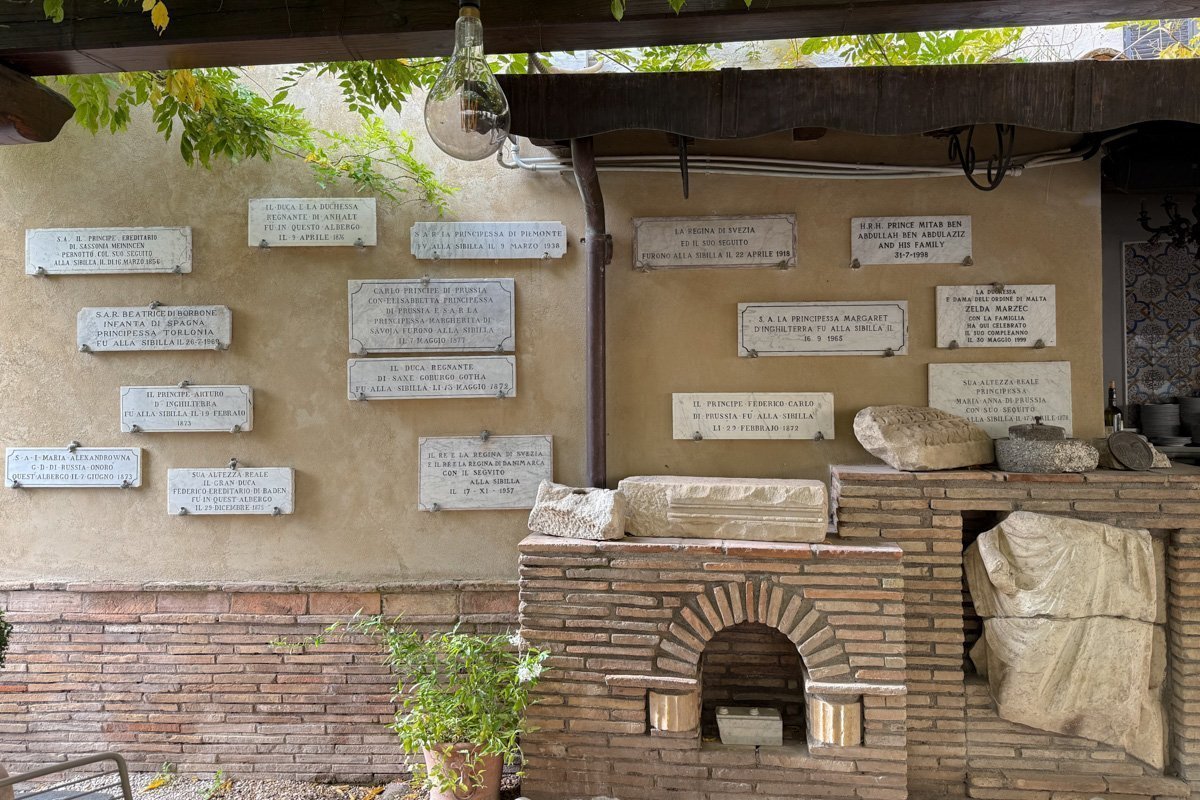 S.A. IL PRINCIPE EREDITARIO
DI SASSONIA MEININCEN
PERNOTTÒ COL SUO SEGUITO
ALLA SIBILLA, IL DI 16 MARZO 1856
IL DUCA E LA DUCHESSA
REGNANTE DI ANHALT
FU IN QUESTO ALBERGO
IL 9 APRILE 1876
S A R LA PRINCIPESSA DI PIEMONTE
FV ALLA SIBILLA IL 9 MARZO 1938
S.A.R. BEATRICE DI BORBONE
INFANTA DI SPAGNA
PRINCIPESSA TORLONIA
FU ALLA SIBILLA IL 26-7-1969
CARLO PRINCIPE DI PRUSSIA
CON ELISABBETTA PRINCIPESSA
DI PRUSSIA E S.A.R LA
PRINCIPESSA MARGHERITA DI
SAVOJA FURONO ALLA SIBILLA
IL 7 MAGGIO 1877
IL DUCA REGNANTE
DI SAXE GOBURGO GOTHA
FU ALLA SIBILLA, LI 13 MAGGIO 1873
IL PRINCIPE ARTURO
D'INGHILTERRA
FU ALLA SIBILLA IL 19 FEBRAIO
1873
S·A·I·MARIA·ALEXANDROWNA
G·D·DI·RUSSIA·ONORO
QUEST'ALBERGO·IL·7·GIUGNO·1873
SUA ALTEZZA REALE
IL GRAN DUCA
FEDERICO EREDITARIO DI BADEN
FU IN QUEST ALBERGO
IL 29 DICEMBRE 1875
IL RE E LA REGINA DI SVEZIA
E IL RE E LA REGINA DI DANIMARCA
CON IL SEGVITO
ALLA SIBILLA
IL 17 - XI - 1957
LA REGINA DI SVEZIA
ED IL SUO SEGUITO
FURONO ALLA SIBILLA IL 22 APRILE 1918
H.R.H. PRINCE MITAB BEN
ABDULLAH BEN ABDULAZIZ
AND HIS FAMILY
31-7-1998
S. A. LA PRINCIPESSA MARGARET
D'INGHILTERRA FU ALLA SIBILLA IL
16 9 1965
LA DUCHESSA
E DAMA DELL'ORDINE DI MALTA
ZELDA MARZEC
CON LA FAMIGLIA
HA QUI CELEBRATO
IL SUO COMPLEANNO
IL 30 MAGGIO 1999
IL PRINCIPE FEDERICO CARLO
DI PRUSSIA FU ALLA SIBILLA
LI 29 FEBBRAJO 1872
SUA ALTEZZA REALE
PRINCIPESSA
MARIA ANNA DI PRUSSIA
CON SUO SEGUITO
ALLA SIBILLA IL 17 APRILE 1878